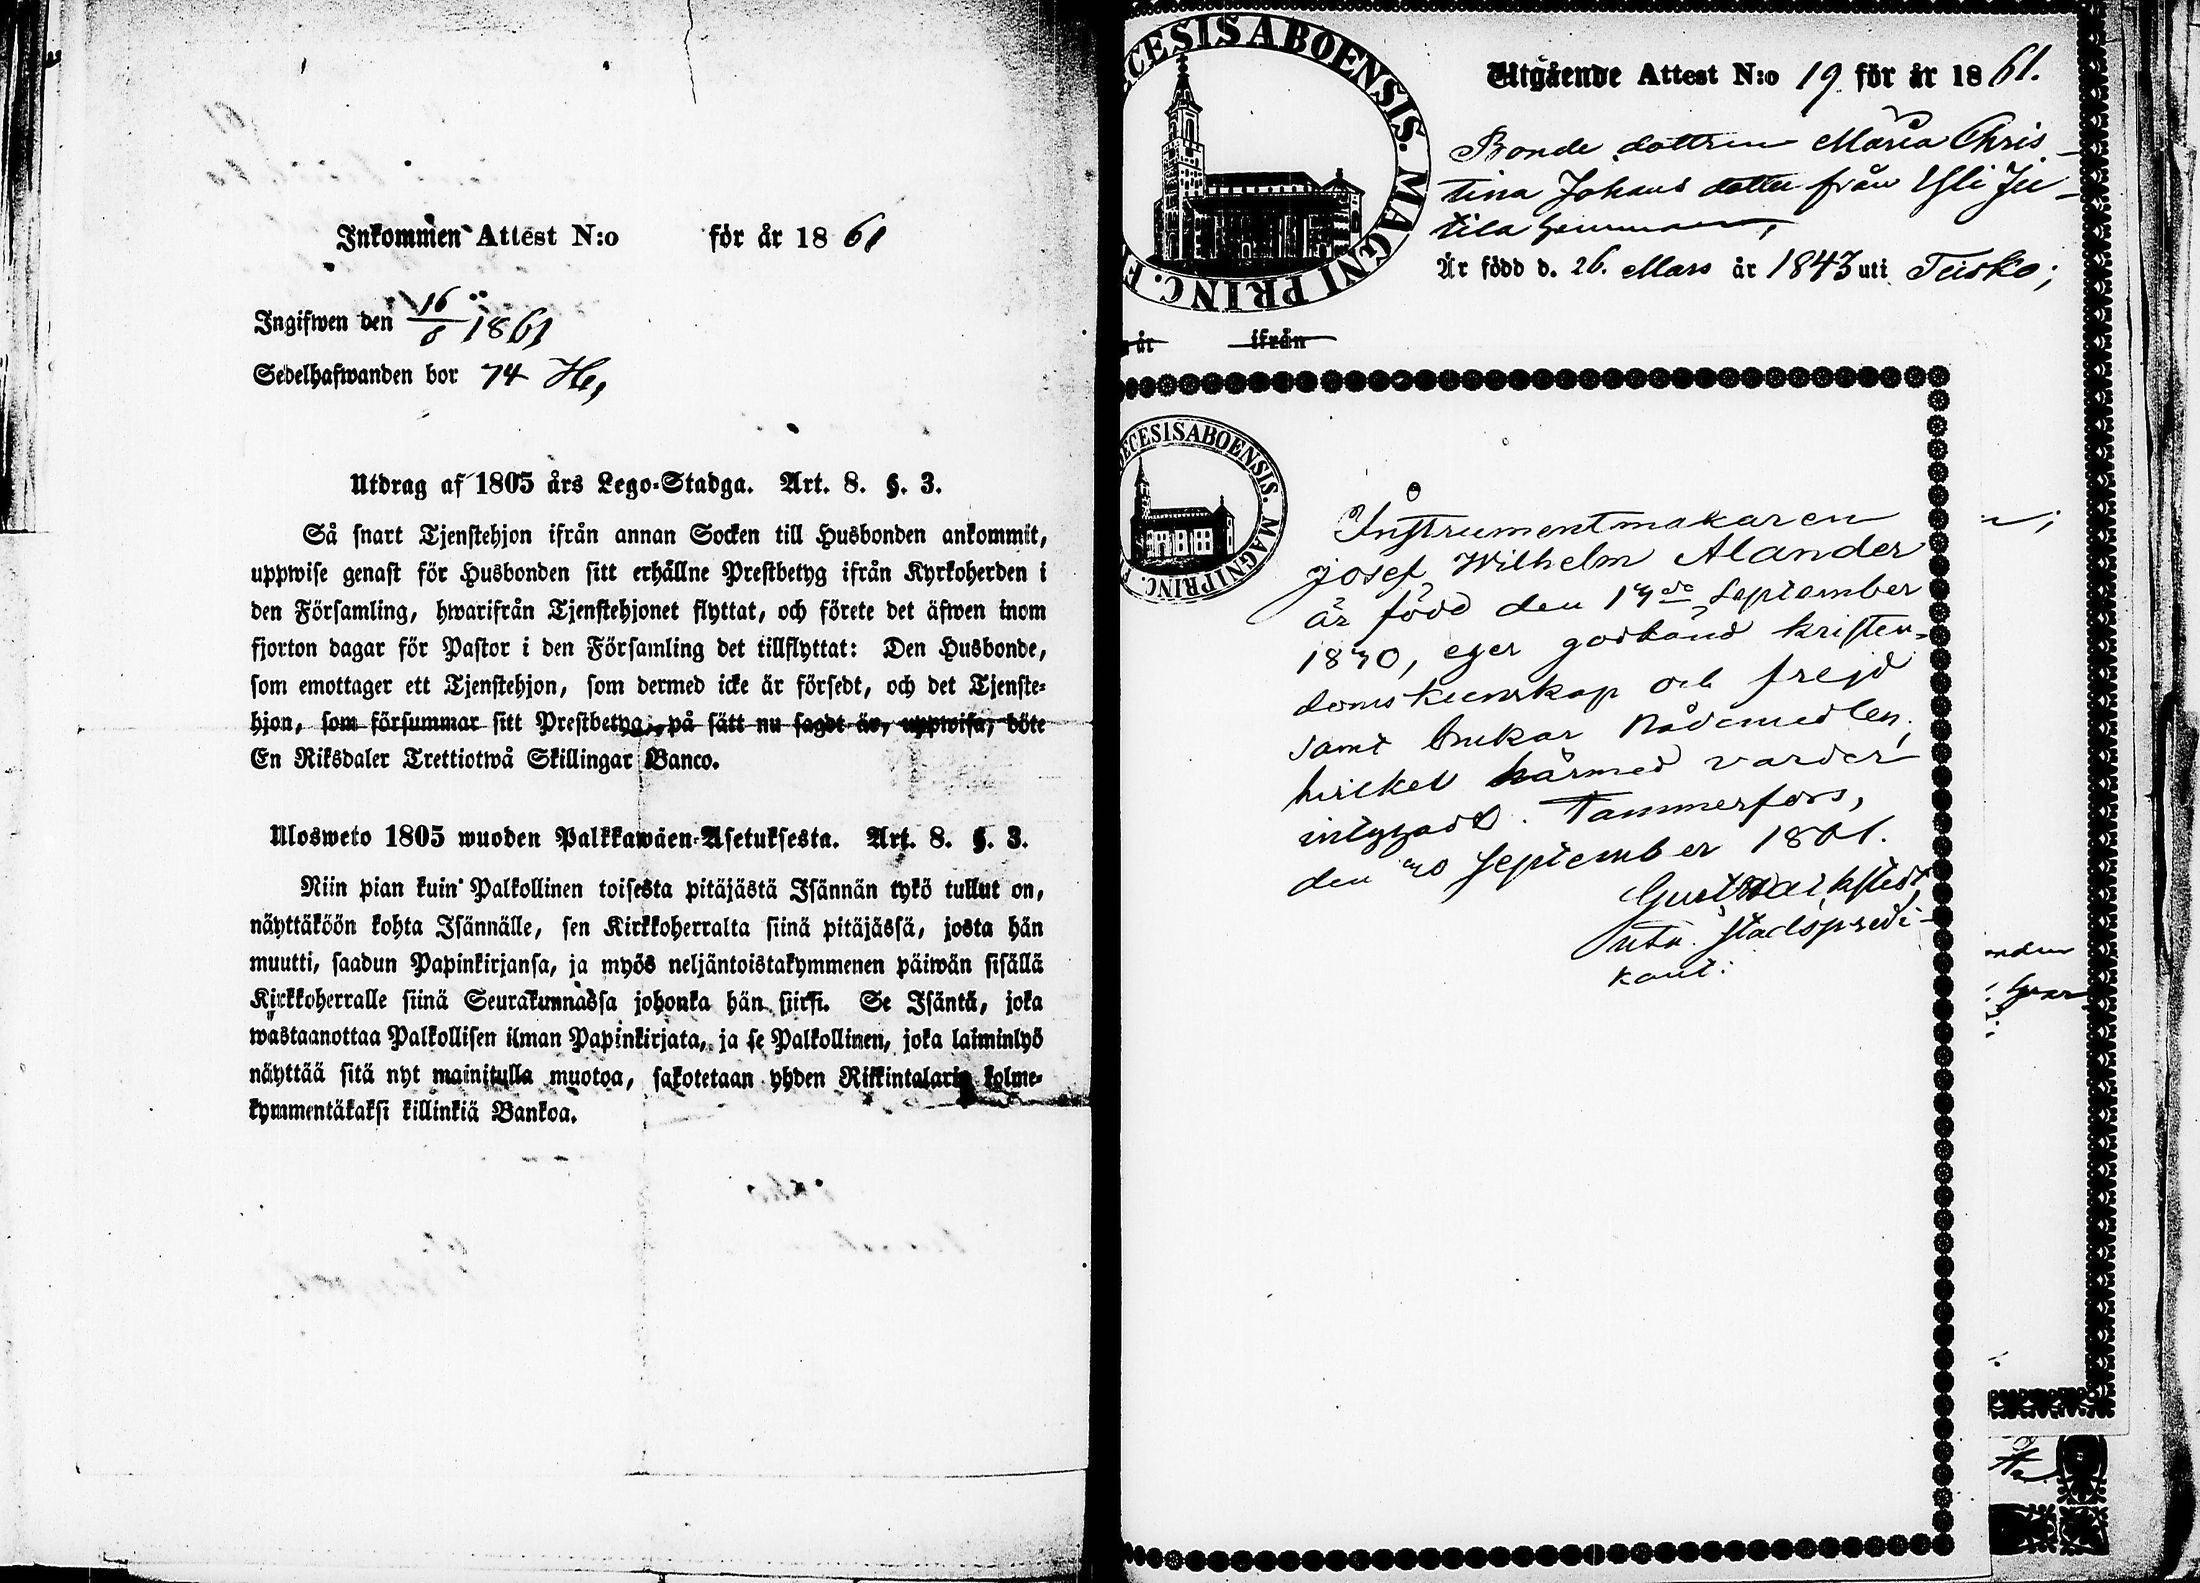 Inkommen Attest N:o för år 1861
Ingifwen den 16/8 1861
Sedelhafwanden bor 74
Utdrag af 1805 års Lego-Stadga. Art. 8. §. 3.
Så snart Tjenstehjon ifrån annan Socken till Husbonden ankommit,
uppwise genast för Husbonden sitt erhållne Prestbetyg ifrån Kyrkoherden i
den Församling, hwarifrån Tjenstehjonet flyttat, och förete det äfwen inom
fjorton dagar för Pastor i den Församling det tillflyttat: Den Husbonde,
som emottager ett Tjenstehjon, som dermed icke är försedt, och det Tjenste-
hjon, som försummar sitt Prestbetyg, på sätt nu sagdt är, uppwisa, böte
En Riksdaler Trettiotwå Skillingar Banco.
Ulosweto 1805 wuoden Palkkawäen-Asetuksesta. Art. 8. §. 3.
Niin pian kuin Palkollinen toisesta pitäjästä Isännän tykö tullut on,
näyttäköön kohta Isännälle, sen Kirkkoherralta siinä pitäjässä, josta hän
muutti, saadun Papinkirjansa, ja myös neljäntoistakymmenen päiwän sisällä
Kirkkoherralle siinä Seurakunnassa johonka hän siirsi. Se Isäntä, joka
wastaanottaa Palkollisen ilman Papinkirjata, ja se Palkollinen, joka laiminlyö
näyttää sitä nyt mainitulla muotoa, sakotetaan yhden Riksintalarin kolme-
kymmentäkaksi killinkiä Bankoa.
CESIS ABOENSIS. MAGNI PRINC. F
Utgående Attest N:o 19 för år 1861.
Bonde dottren Maria Chris-
tina Johans dotter från Yli Ju-
tila hemman,
Är född d. 26. Mars år 1843 uti Teisko;
år ifrån
ECESIS ABOENSIS. MAGNI PRINC. F
Instrumentmakaren
Josef Wilhelm Alander
är född den 17de September
1840, eger godkänd kristen-
domskunskap och frejd
samt brukar Nådemedlen,
hvilket härmed varder
intygadt. Tammerfors,
den 20 September 1861.
Gust.
Stadspredi-
kant.